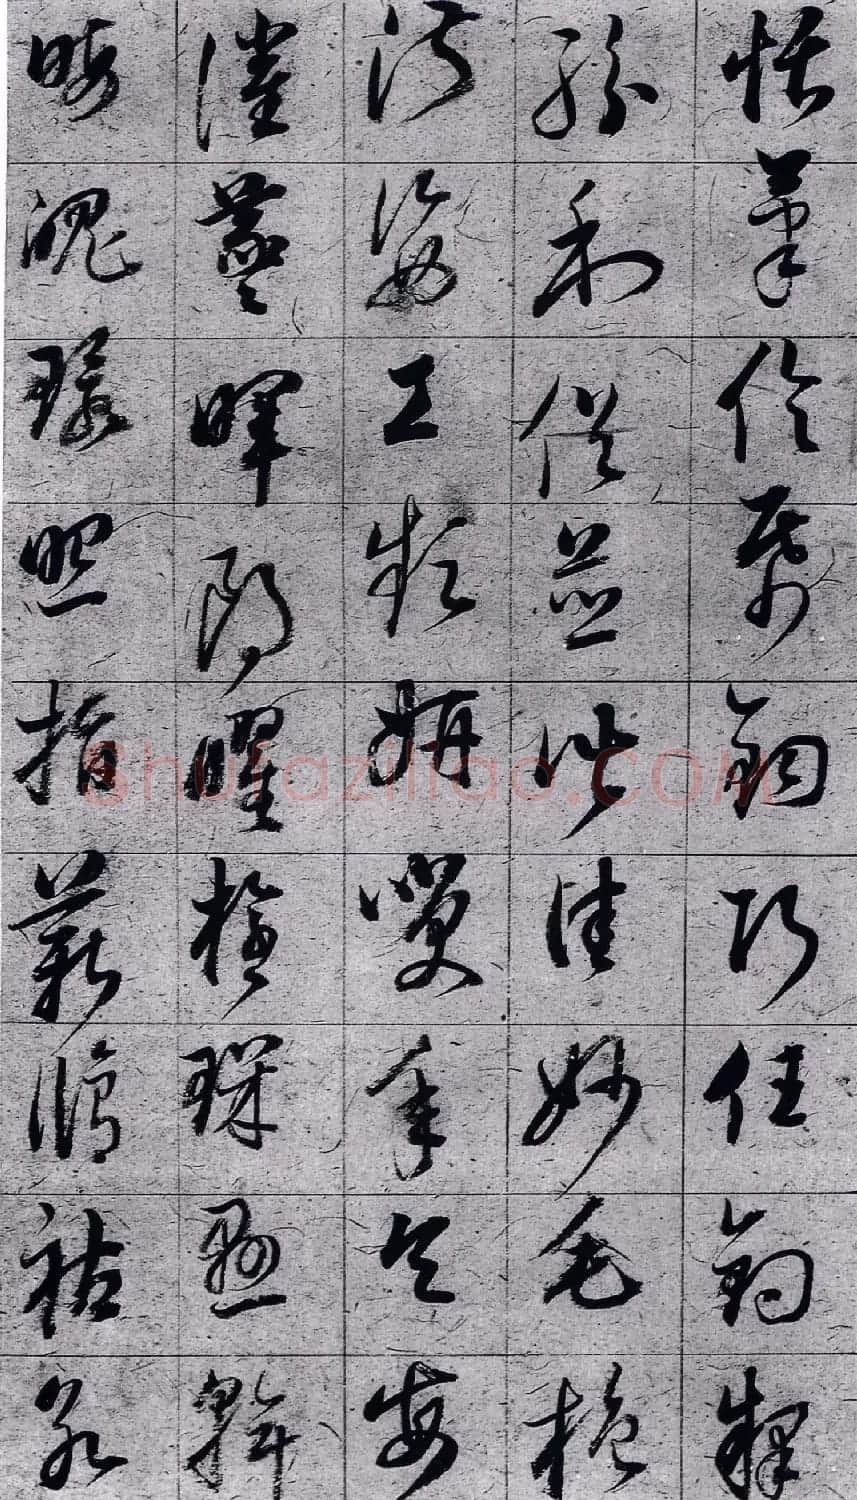 恬筆倫帋鈞巧任釣釋
紛利俗並皆佳妙毛施
淑姿工顰妍笑年矢每
催羲暉朗曜璇璣懸斡
晦魄環照指薪修祐永
Shufaziliao.COM